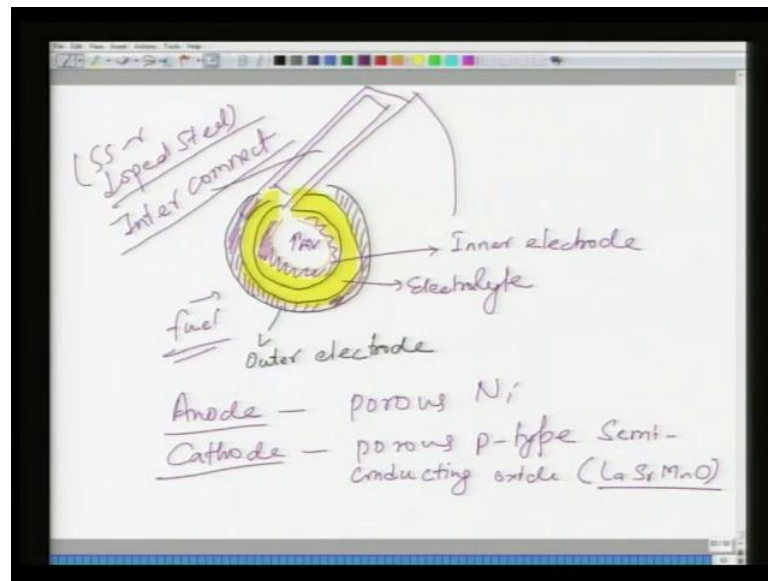 File Edit View Insert Actions Tools Help
(SS or
Doped Steel)
Inter connect
Inner electrode
Electrolyte
fuel
Outer electrode
Anode — porous Ni
Cathode — porous p-type Semi-
conducting oxide (LaSrMnO)